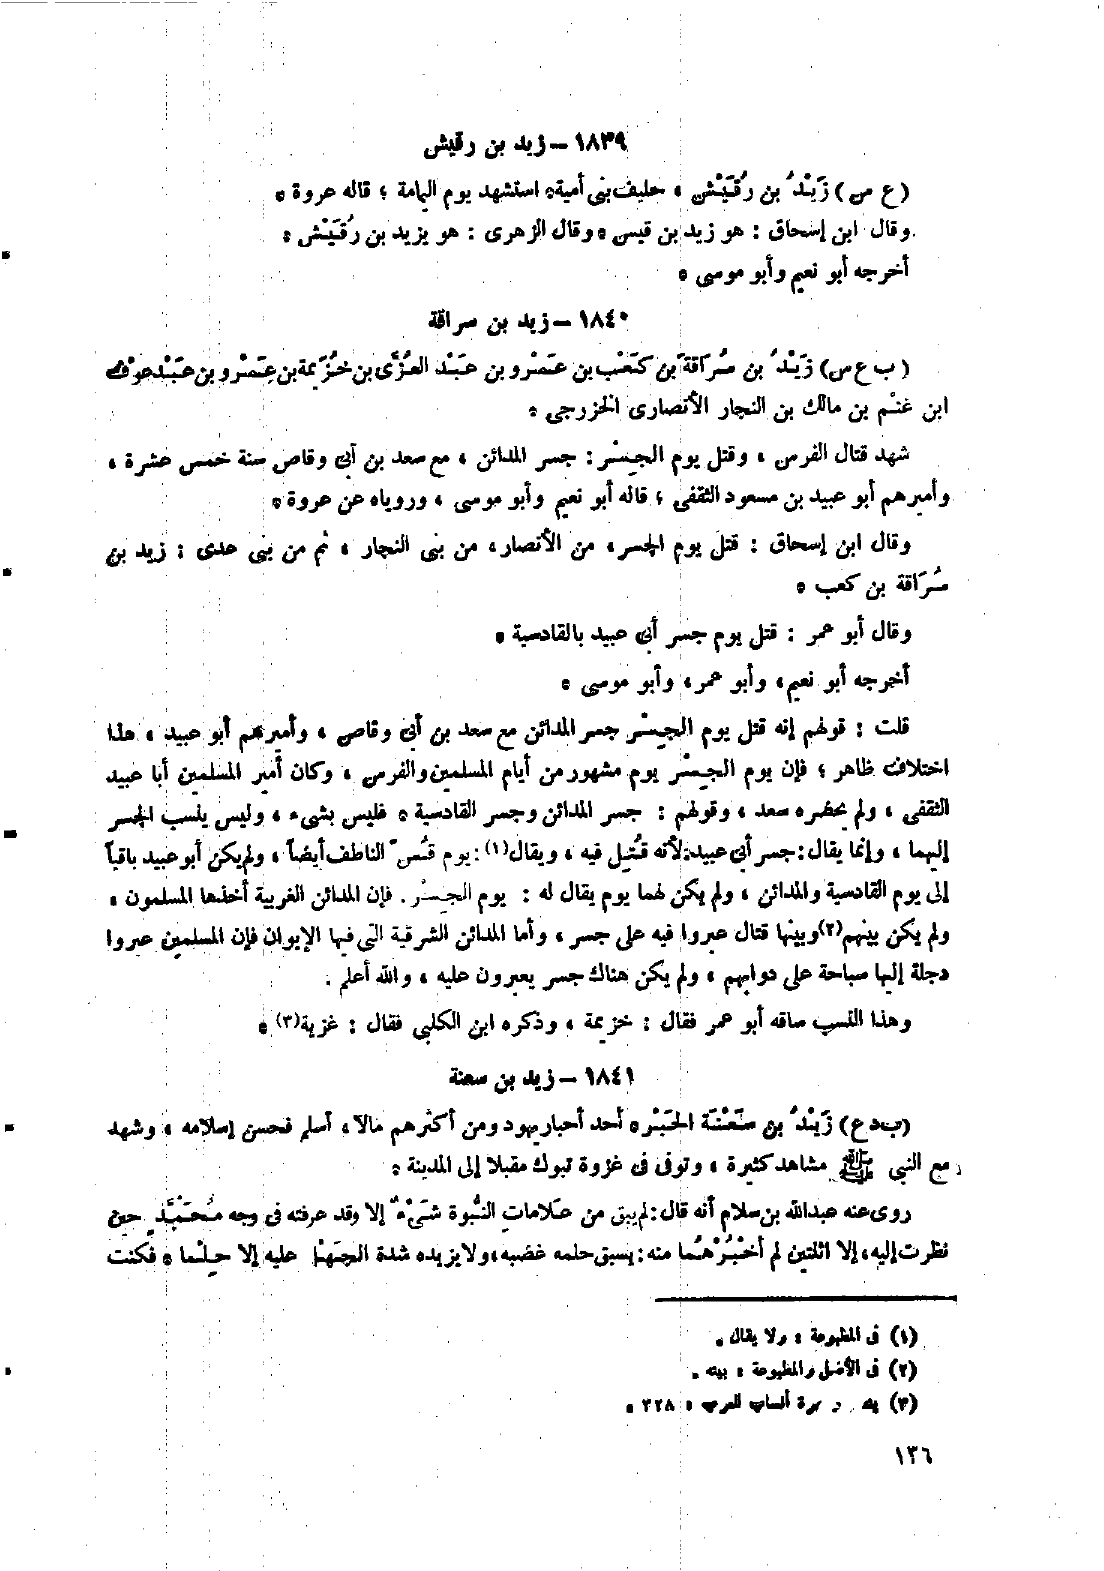 ١٨٣٩ – زيد بن رقيش
(ع س) زَيْدُ بن رُقَيْش ، حليف بنى أمية. استشهد يوم اليمامة ؛ قاله عروة .
وقال ابن إسحاق : هو زيد بن قيس . وقال الزهرى : هو يزيد بن رُقَيْش .
أخرجه أبو نعيم وأبو موسى .
١٨٤٠ – زيد بن سراقة
(ب ع س) زَيْدُ بن سُرَاقَةَ بن كَعْب بن عَمْرو بن عَبْد العُزَّى بن خُزَيمة بن عَمْرو بن عَبْد عوْف
ابن غَنْم بن مالك بن النجار الأنصارى الخزرجى .
شهد قتال الفرس ، وقتل يوم الجِسْر : جسر المدائن ، مع سعد بن أبى وقاص سنة خمس عشرة ،
وأميرهم أبو عبيد بن مسعود الثقفى ؛ قاله أبو نعيم وأبو موسى ، وروياه عن عروة .
وقال ابن إسحاق : قتل يوم الجسر، من الأنصار، من بنى النجار ، ثم من بنى عدى : زيد بن
سُرَاقة بن كعب .
وقال أبو عمر : قتل يوم جسر أبى عبيد بالقادسية .
أخرجه أبو نعيم، وأبو عمر، وأبو موسى .
قلت : قولهم إنه قتل يوم الجِسْر جسر المدائن مع سعد بن أبى وقاص ، وأميرهم أبو عبيد ، هذا
اختلاف ظاهر ؛ فإن يوم الجِسْر يوم مشهور من أيام المسلمين والفرس ، وكان أمير المسلمين أبا عبيد
الثقفى ، ولم يحضره سعد ، وقولهم : جسر المدائن وجسر القادسية . فليس بشىء ، وليس ينسب الجسر
إليهما ، وإنما يقال : جسر أبى عبيد؛ لأنه قُتِل فيه ، ويقال(١) : يوم قُسّ الناطف أيضاً ، ولم يكن أبو عبيد باقياً
إلى يوم القادسية والمدائن ، ولم يكن لهما يوم يقال له : يوم الجِسْر . فإن المدائن الغربية أخذها المسلمون ،
ولم يكن بينهم(٢) وبينها قتال عبروا فيه على جسر ، وأما المدائن الشرقية التى فيها الإيوان فإن المسلمين عبروا
دجلة إليها سباحة على دوابهم ، ولم يكن هناك جسر يعبرون عليه ، والله أعلم .
وهذا النسب ساقه أبو عمر فقال : خزيمة ، وذكره ابن الكلبى فقال : غزية(٣) .
١٨٤١ – زيد بن سعنة
(ب د ع) زَيْدُ بن سَعْنَة الحَبْر. أحد أحبار يهود ومن أكثرهم مالاً، أسلم فحسن إسلامه ، وشهد
مع النبى ﷺ مشاهد كثيرة ، وتوفى فى غزوة تبوك مقبلا إلى المدينة .
روى عنه عبد الله بن سلام أنه قال : لم يبق من علامات النُّبوة شَىْءٌ إلا وقد عرفته فى وجه مُحَمَّد حين
نظرت إليه، إلا اثنتين لم أَخْبُرْهُما منه : يسبق حلمه غضبه، ولا يزيده شدة الجهل عليه إلا حِلْما . فكنت
(١) فى المطبوعة : ولا يقال .
(٢) فى الأصل والمطبوعة : بينه .
(٣) جمهرة أنساب العرب : ٣٢٨ .
١٣٦